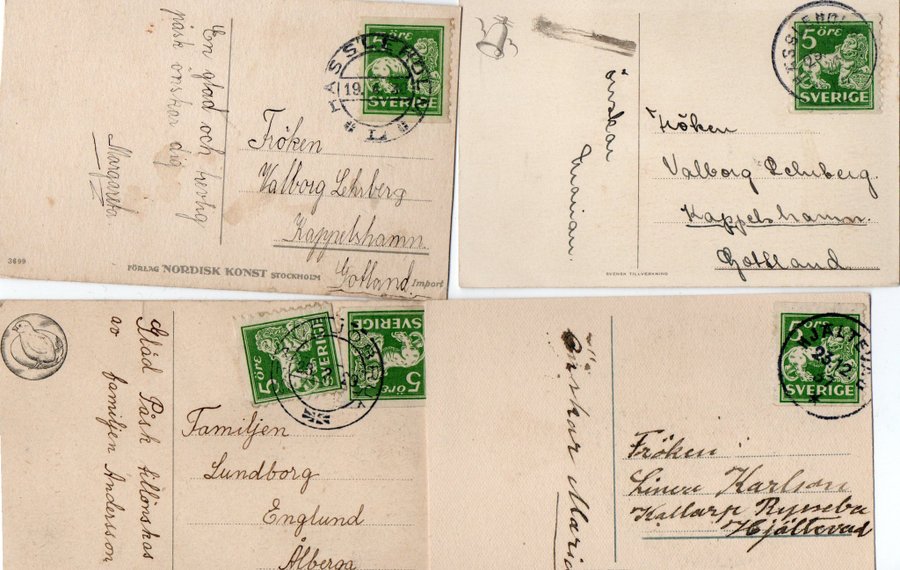 En glad och hevlig
påsk önskar dig
Margareta
5 ÖRE
SVERIGE
HÄSSLEHOLM
19. 4.
Fröken
Valborg Lehrberg
Kappelshamn.
Gotland.
3699
FÖRLAG NORDISK KONST STOCKHOLM
Import
önskar
Marian.
5 ÖRE
SVERIGE
Fröken
Valborg Lehrberg.
Kappelshamn.
Gottland.
SVENSK TILLVERKNING
Glad Påsk tillönskas
av familjen Andersson
5 ÖRE
SVERIGE
5 ÖRE
SVERIGE
Familjen
Lundborg
Englund
Ålberga
önskar Maria
5 ÖRE
SVERIGE
HJÄLTEVAD
23.12
Fröken
Karlson
Kallarp
Hjältevad